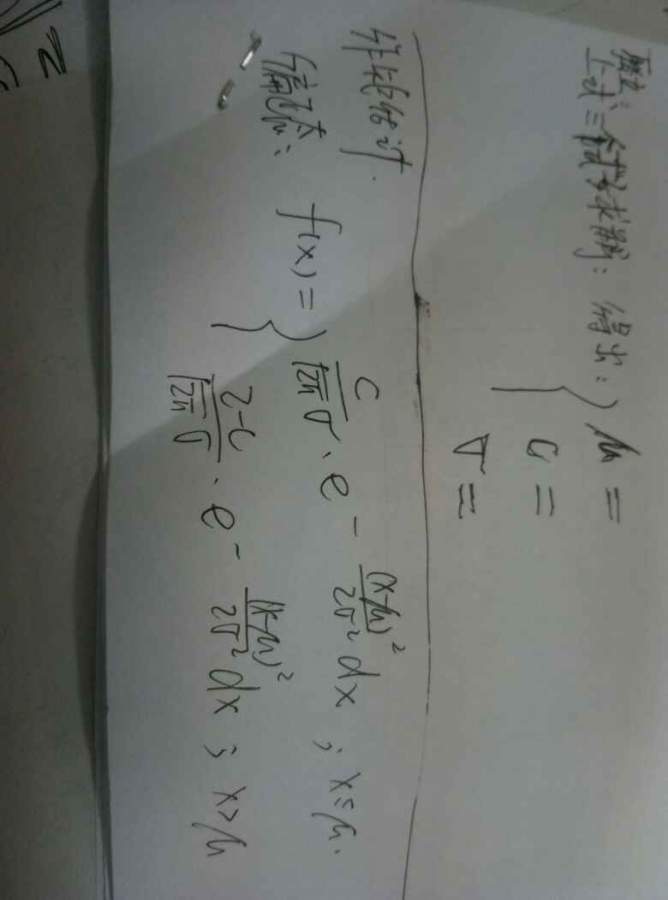 上式三个式子求解: 得出: { μ =
c =
σ =
非线性估计.
偏正态: f(x) = { c/(√2π σ) · e^-(x-μ)²/2σ² dx ; x≤μ.
2-c/(√2π σ) · e^-(x-μ)²/2σ² dx ; x>μ